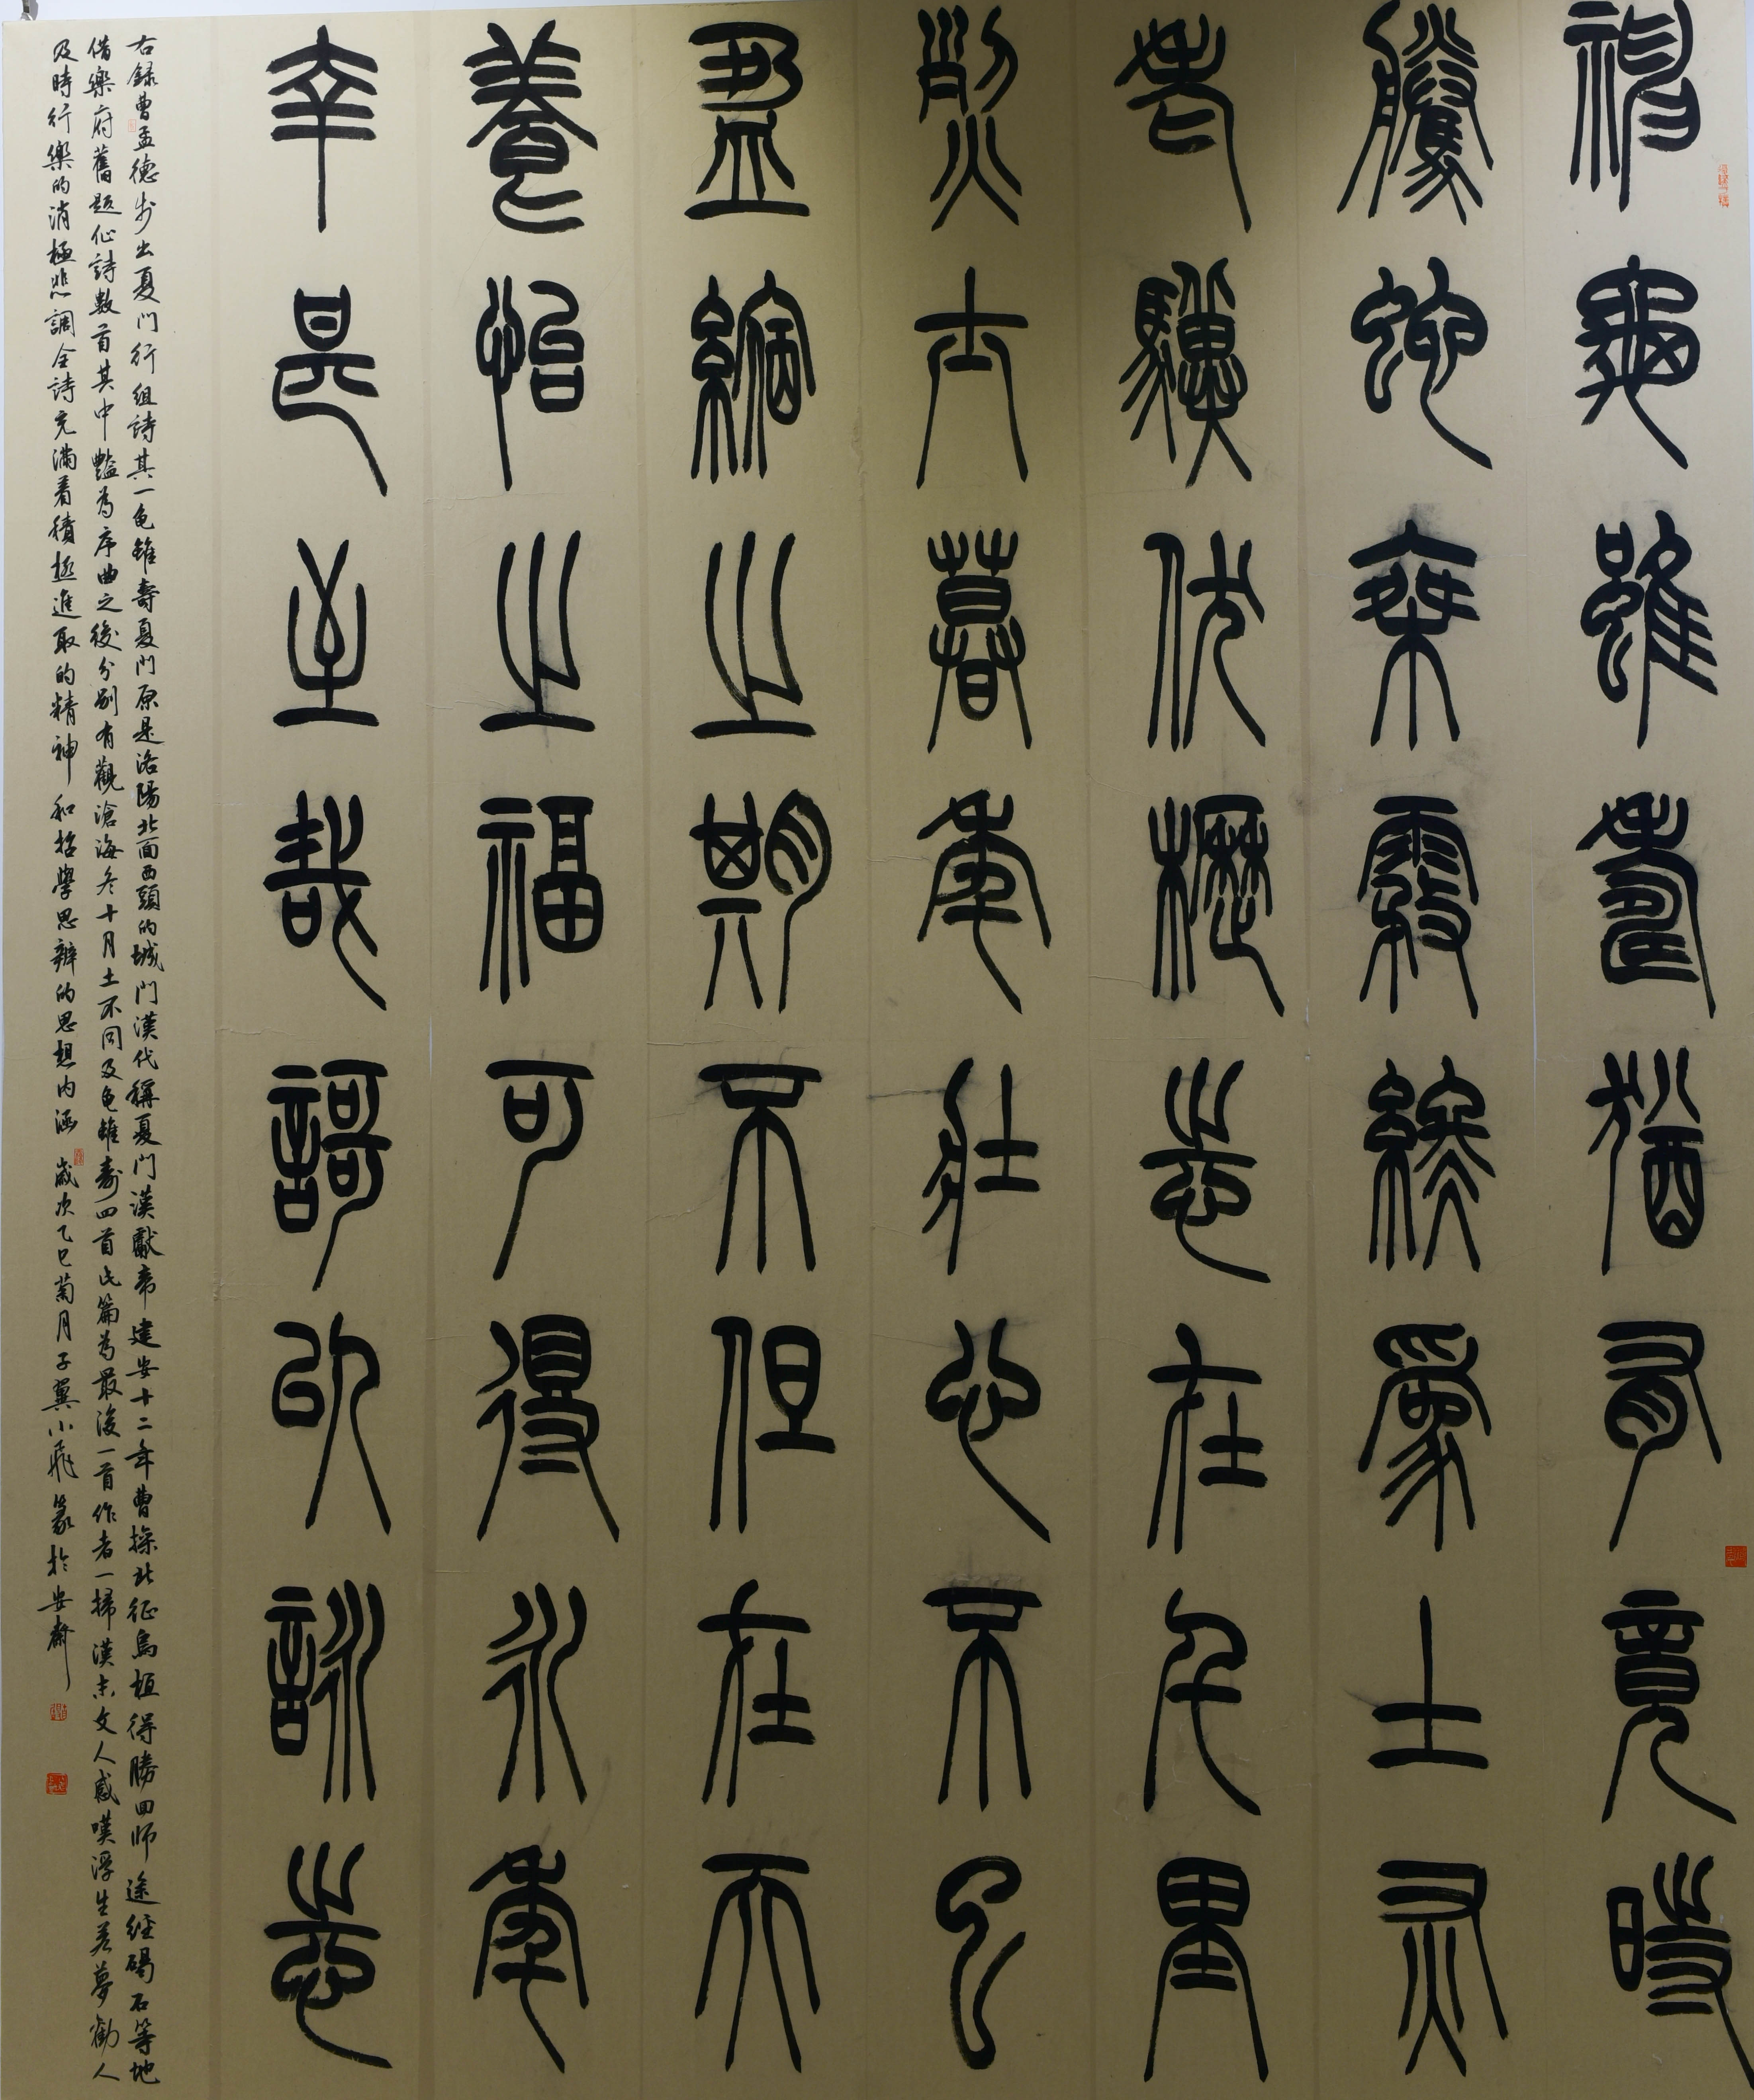 神龜雖壽猶有竟時
騰蛇乘霧終為土灰
老驥伏櫪志在千里
烈士暮年壯心不已
盈縮之期不但在天
養怡之福可得永年
幸甚至哉謌以詠志
右錄曹孟德步出夏門行組詩其一龟雖壽夏門原是洛陽北面西頭的城門漢代稱夏門漢獻帝建安十二年曹操北征烏桓得勝回師途經碣石等地
借樂府舊題作詩數首其中豔為序曲之後分別有觀滄海冬十月土不同及龟雖壽四首此篇為最後一首作者一掃漢末文人感嘆浮生若夢勸人
及時行樂的消極悲調全詩充滿着積極進取的精神和哲學思辨的思想内涵 歲次乙巳菊月子翼小飛篆於安齋